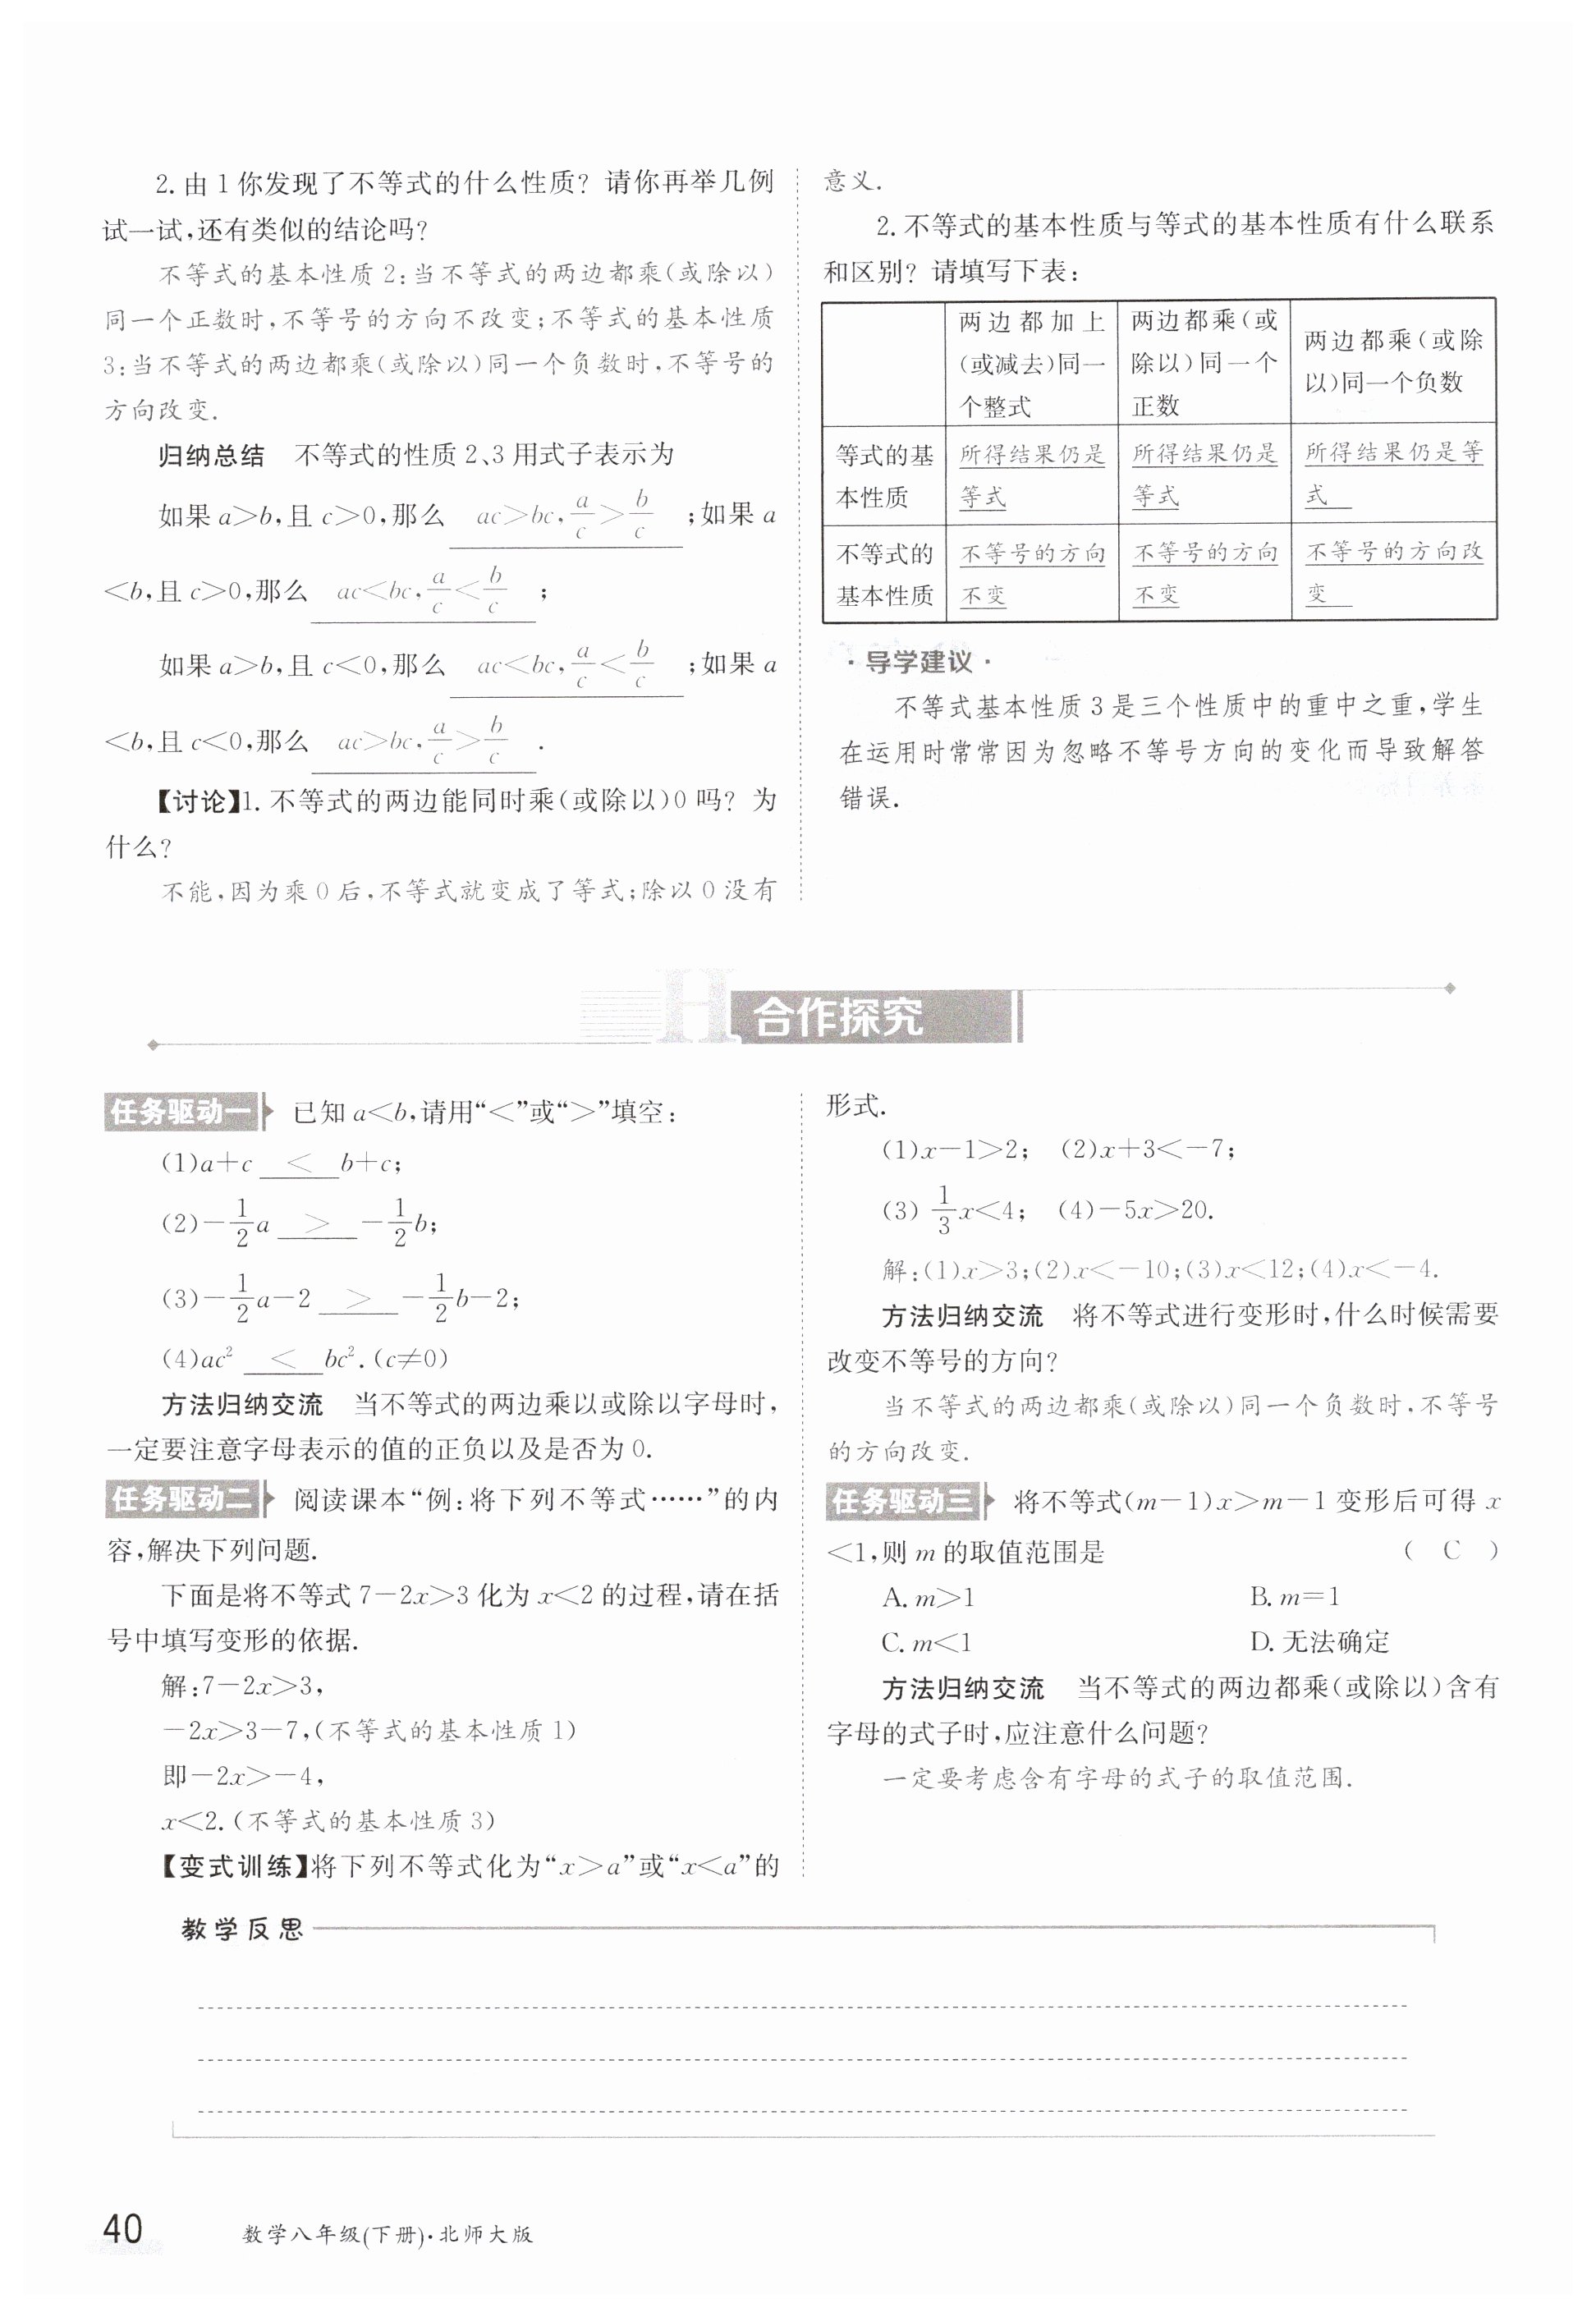 2.由1你发现了不等式的什么性质？请你再举几例
试一试,还有类似的结论吗？
不等式的基本性质2:当不等式的两边都乘(或除以)
同一个正数时,不等号的方向不改变;不等式的基本性质
3:当不等式的两边都乘(或除以)同一个负数时,不等号的
方向改变.
归纳总结　不等式的性质2、3用式子表示为
如果a>b,且c>0,那么 ac>bc, a/c > b/c ;如果a
<b,且c>0,那么 ac<bc, a/c < b/c ;
如果a>b,且c<0,那么 ac<bc, a/c < b/c ;如果a
<b,且c<0,那么 ac>bc, a/c > b/c .
【讨论】1.不等式的两边能同时乘(或除以)0吗？为
什么？
不能,因为乘0后,不等式就变成了等式;除以0没有
意义.
2.不等式的基本性质与等式的基本性质有什么联系
和区别？请填写下表:
两边都加上
(或减去)同一
个整式
两边都乘(或
除以)同一个
正数
两边都乘(或除
以)同一个负数
等式的基
本性质
所得结果仍是
等式
所得结果仍是
等式
所得结果仍是等
式
不等式的
基本性质
不等号的方向
不变
不等号的方向
不变
不等号的方向改
变
·导学建议·
不等式基本性质3是三个性质中的重中之重,学生
在运用时常常因为忽略不等号方向的变化而导致解答
错误.
H 合作探究
任务驱动一　已知a<b,请用“<”或“>”填空:
(1)a+c < b+c;
(2)-1/2a > -1/2b;
(3)-1/2a-2 > -1/2b-2;
(4)ac² < bc².(c≠0)
方法归纳交流　当不等式的两边乘以或除以字母时,
一定要注意字母表示的值的正负以及是否为0.
任务驱动二　阅读课本“例:将下列不等式……”的内
容,解决下列问题.
下面是将不等式7-2x>3化为x<2的过程,请在括
号中填写变形的依据.
解:7-2x>3,
-2x>3-7,(不等式的基本性质1)
即-2x>-4,
x<2.(不等式的基本性质3)
【变式训练】将下列不等式化为“x>a”或“x<a”的
形式.
(1)x-1>2;　(2)x+3<-7;
(3)1/3x<4;　(4)-5x>20.
解:(1)x>3;(2)x<-10;(3)x<12;(4)x<-4.
方法归纳交流　将不等式进行变形时,什么时候需要
改变不等号的方向？
当不等式的两边都乘(或除以)同一个负数时,不等号
的方向改变.
任务驱动三　将不等式(m-1)x>m-1变形后可得x
<1,则m的取值范围是　( C )
A.m>1　B.m=1
C.m<1　D.无法确定
方法归纳交流　当不等式的两边都乘(或除以)含有
字母的式子时,应注意什么问题？
一定要考虑含有字母的式子的取值范围.
教学反思
40　数学八年级(下册)·北师大版